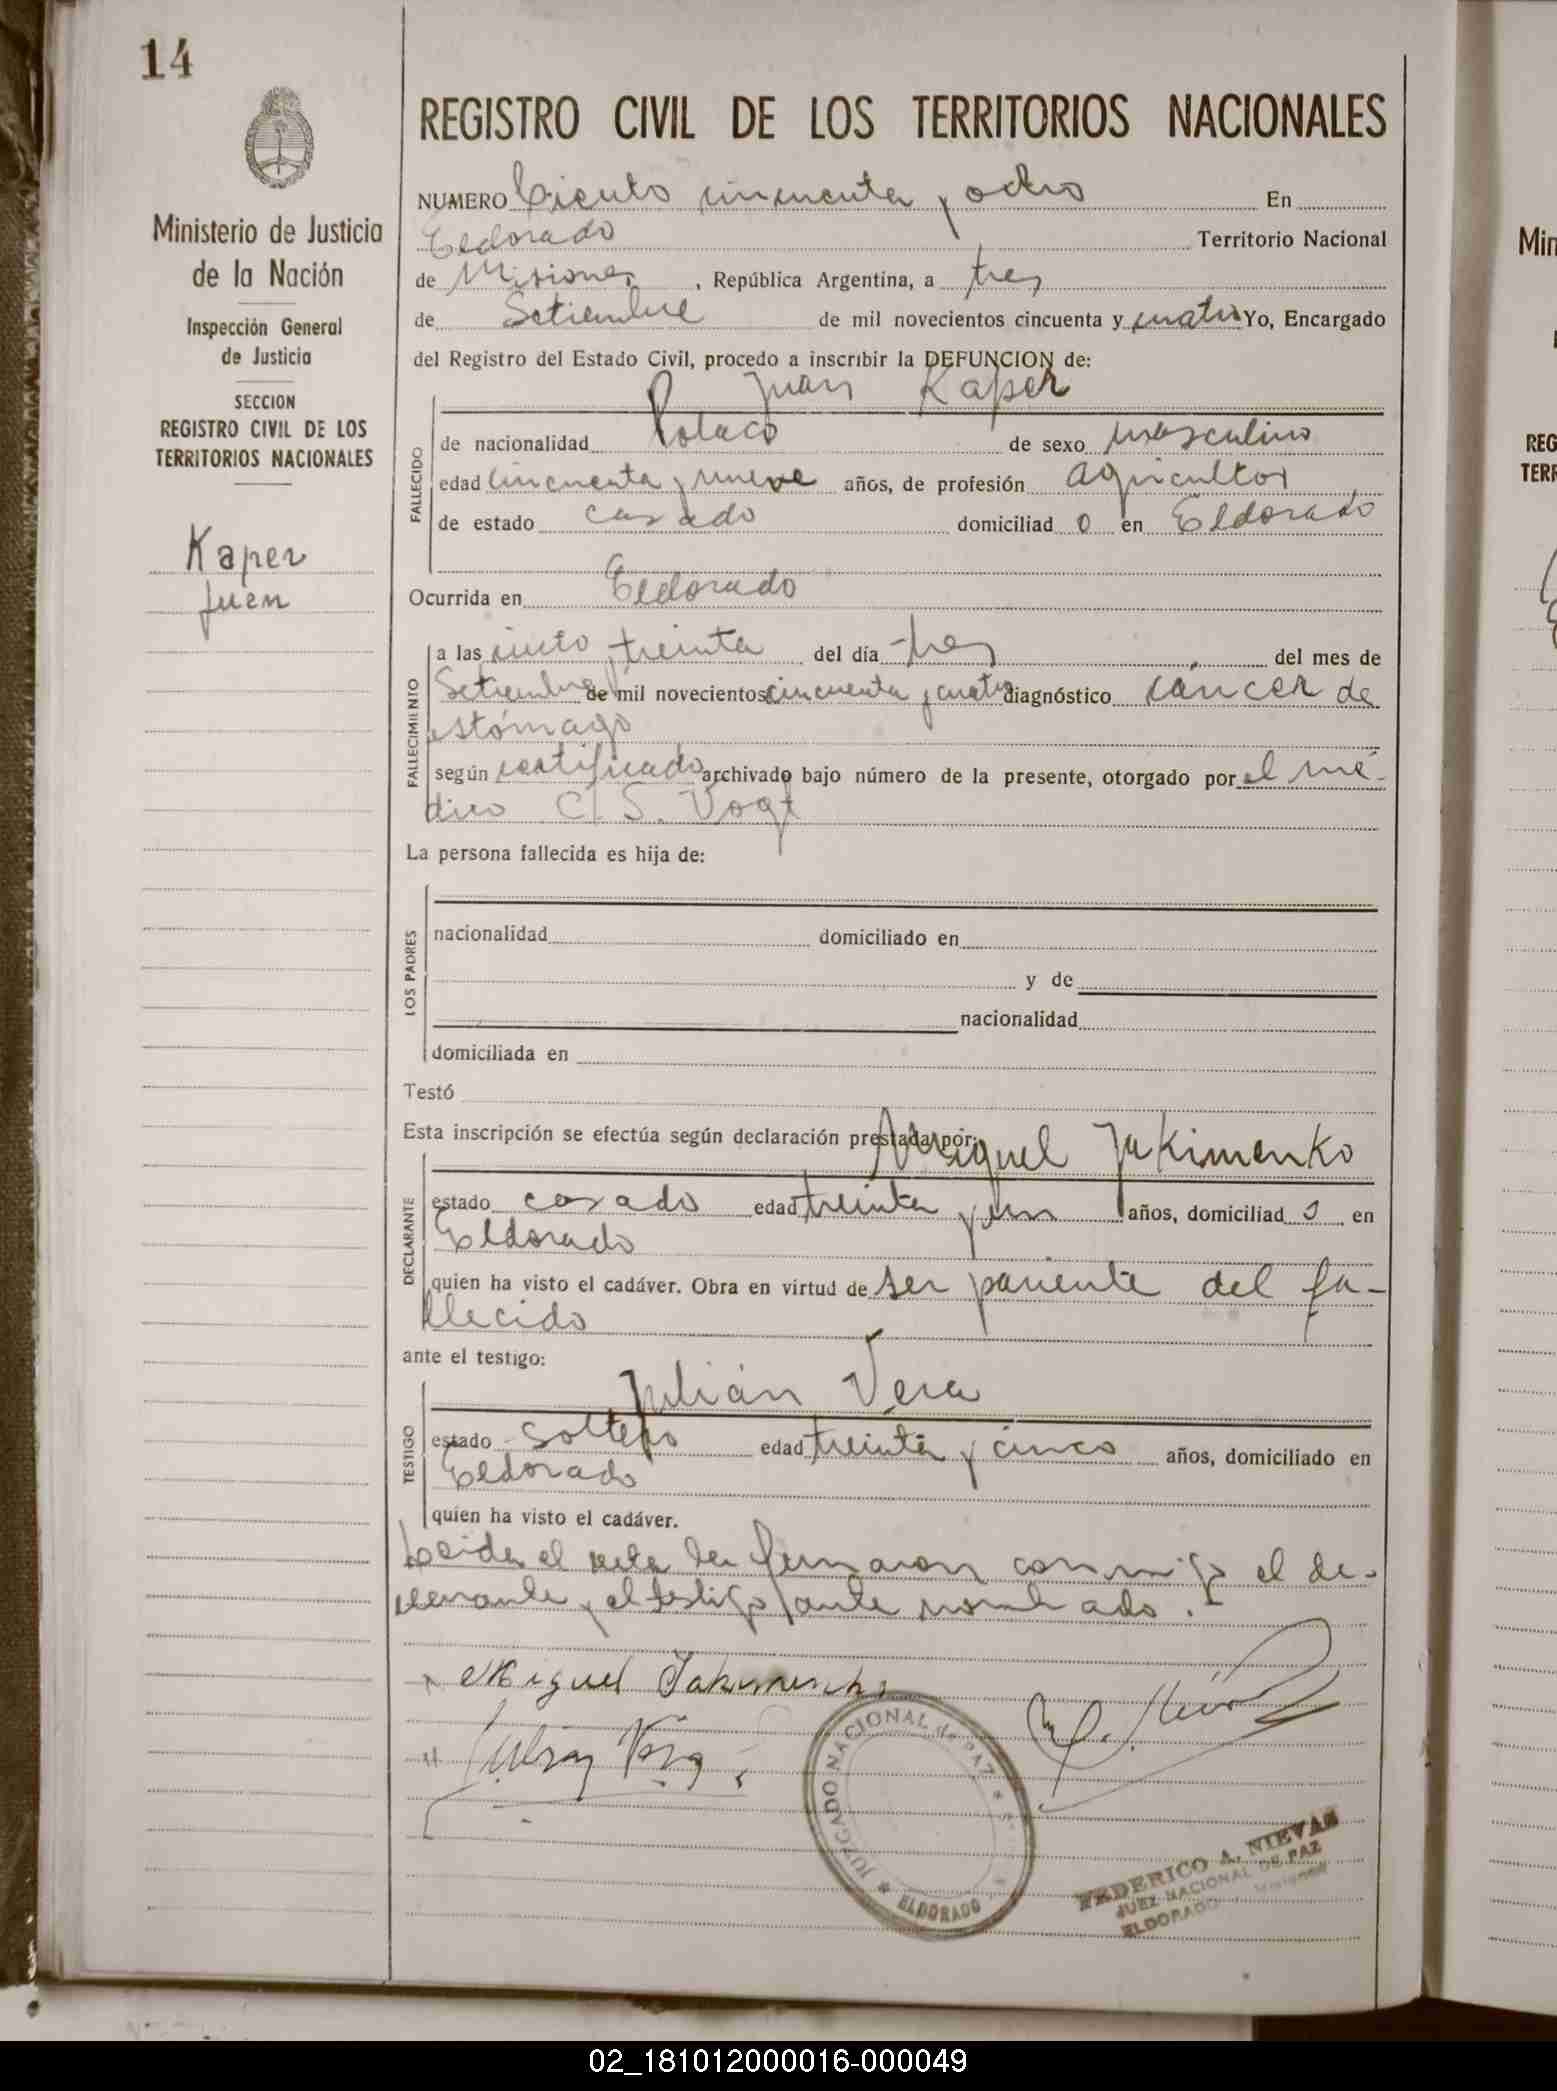 14
REGISTRO CIVIL DE LOS TERRITORIOS NACIONALES
Ministerio de Justicia
de la Nación
Inspección General
de Justicia
SECCION
REGISTRO CIVIL DE LOS
TERRITORIOS NACIONALES
Kaper
Juan
NUMERO Ciento cincuenta y ocho En
Eldorado Territorio Nacional
de Misiones, República Argentina, a tres
de Setiembre de mil novecientos cincuenta y cuatro Yo, Encargado
del Registro del Estado Civil, procedo a inscribir la DEFUNCION de:
Juan Kaper
FALLECIDO
de nacionalidad Polaco de sexo masculino
edad cincuenta y nueve años, de profesión agricultor
de estado casado domiciliad o en Eldorado
Ocurrida en Eldorado
FALLECIMIENTO
a las treinta del día tres del mes de
Setiembre de mil novecientos cincuenta y cuatro diagnóstico cáncer de
estómago
según certificado archivado bajo número de la presente, otorgado por el mé-
dico C/S. Vogt
La persona fallecida es hija de:
LOS PADRES
nacionalidad domiciliado en
y de
nacionalidad
domiciliada en
Testó
Esta inscripción se efectúa según declaración prestada por: Miguel Jakimenko
DECLARANTE
estado casado edad treinta y un años, domiciliad o en
Eldorado
quien ha visto el cadáver. Obra en virtud de ser pariente del fa-
llecido
ante el testigo:
Julián Vera
TESTIGO
estado soltero edad treinta y cinco años, domiciliado en
Eldorado
quien ha visto el cadáver.
Leida el acta la firmaron conmigo el de-
clarante y el testigo ante nombrado.
Miguel Jakimenko
Julian Vera
JUZGADO NACIONAL de PAZ
ELDORADO
FEDERICO A. NIEVAS
JUEZ NACIONAL DE PAZ
ELDORADO Misiones
Min
REG
TERR
02_181012000016-000049